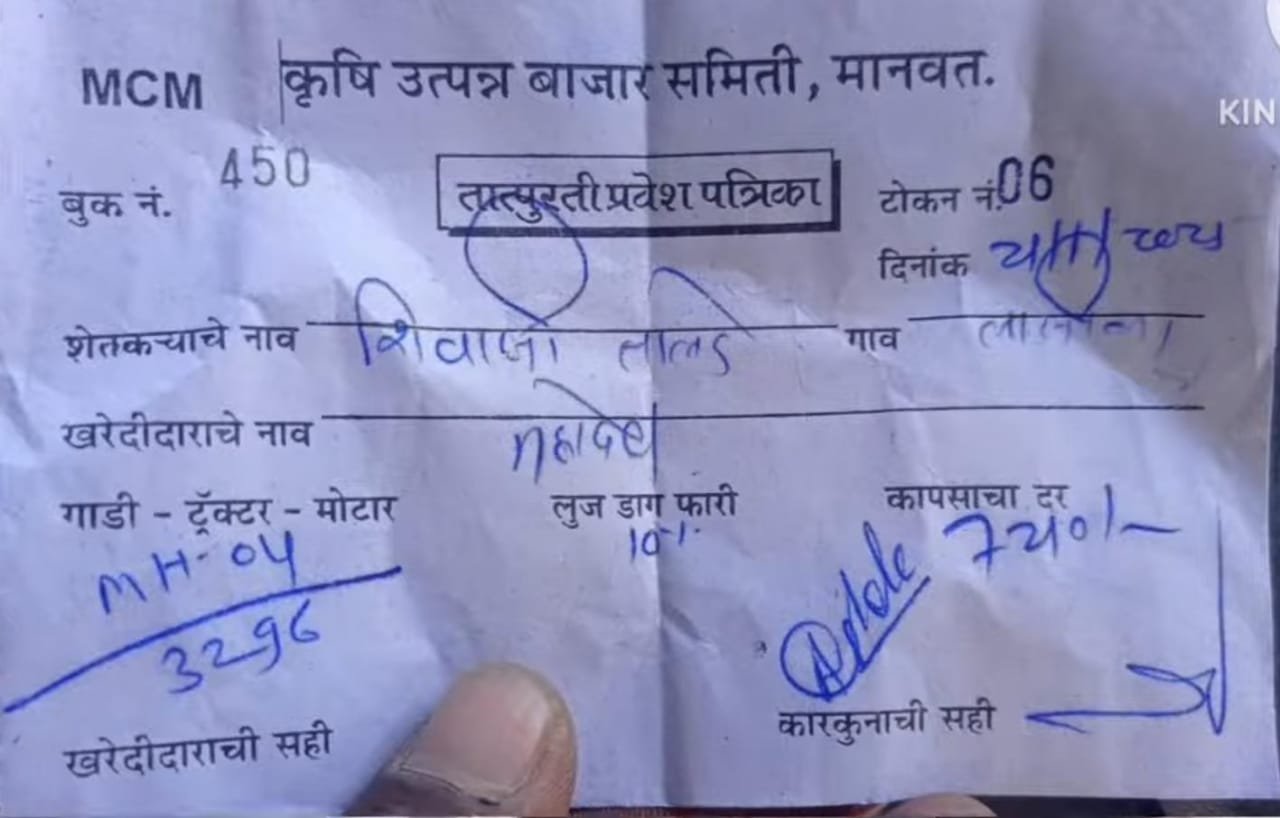 MCM कृषि उत्पन्न बाजार समिती, मानवत.
KIN
बुक नं. 450 तात्पुरती प्रवेश पत्रिका टोकन नं. 06
दिनांक
शेतकऱ्याचे नाव शिवाजी गाव
खरेदीदाराचे नाव महादेव
गाडी - ट्रॅक्टर - मोटार लुज डाग फारी कापसाचा दर
MH-04 10%
3296
खरेदीदाराची सही कारकुनाची सही